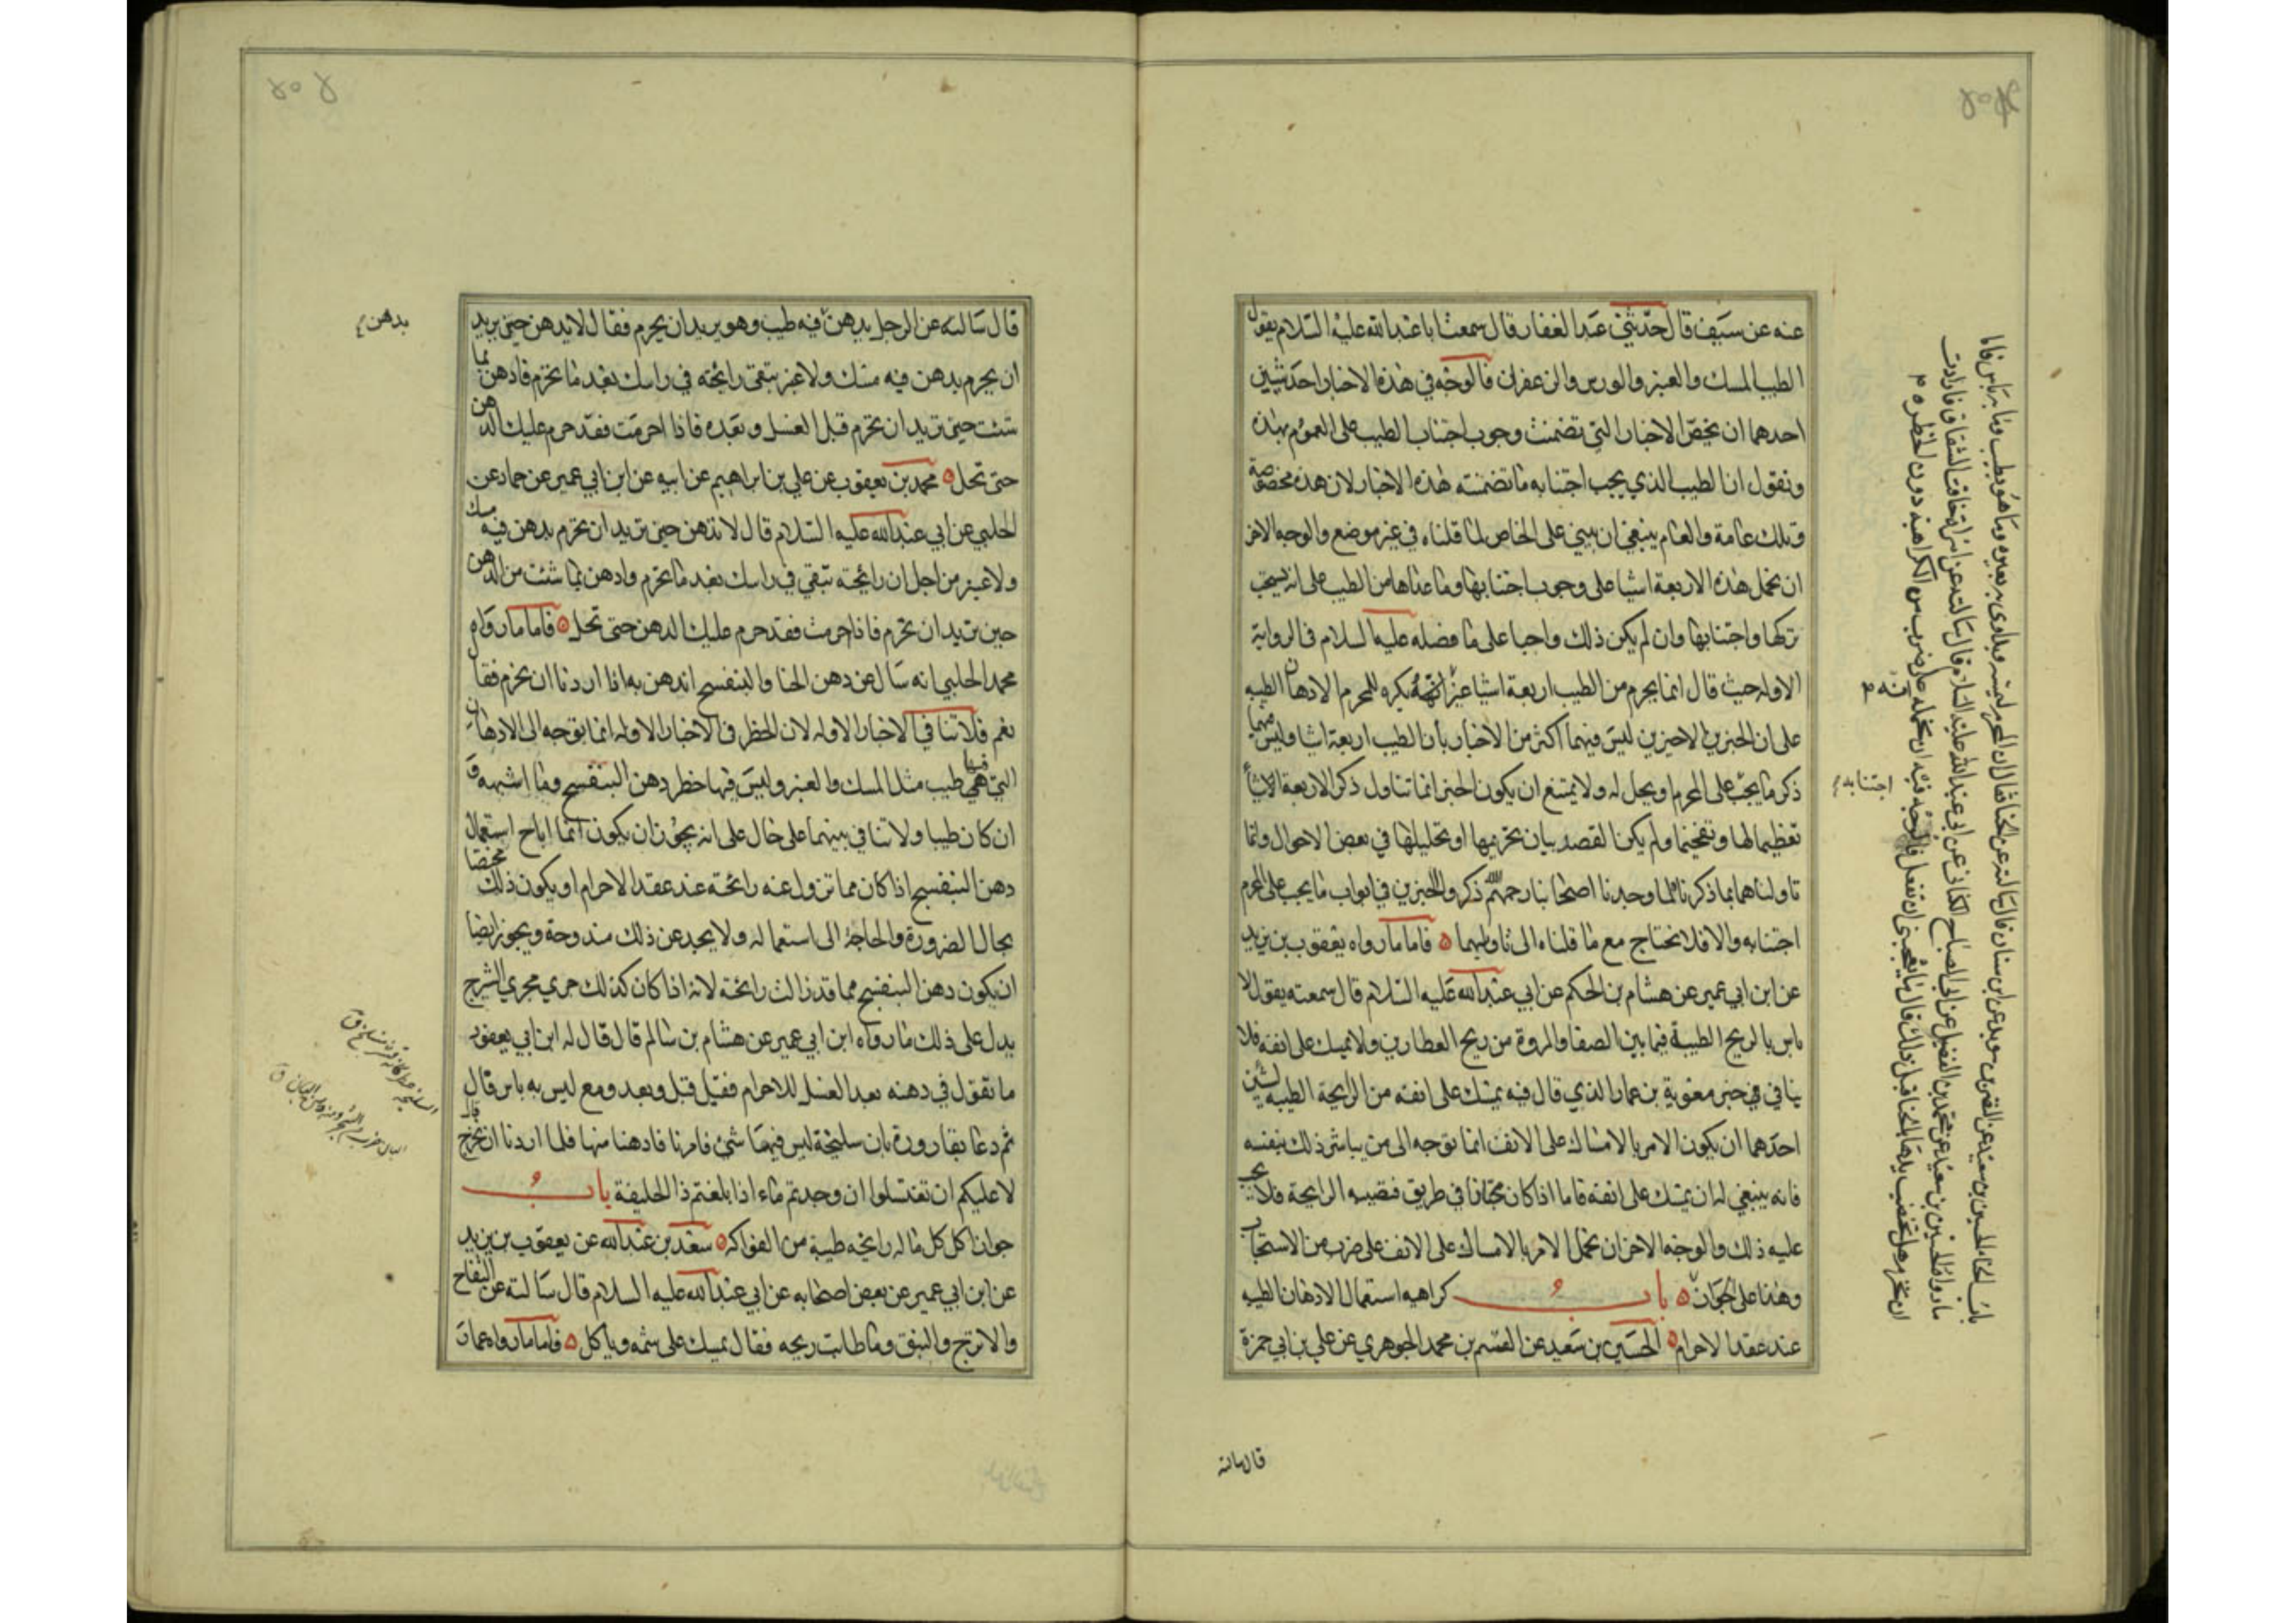 عنه عن سيف قال حدثني عبد الغفار قال سمعت ابا عبد الله عليه السلام يقول
الطيب المسك والعنبر والورس والزعفران فالوجه في هذه الاخبار احد شيئين
احدهما ان نخص الاخبار التي تضمنت وجوب اجتناب الطيب على العموم بهذه
ونقول ان الطيب الذي يجب اجتنابه ما تضمنته هذه الاخبار لان هذه مخصوصة
وتلك عامة والعام ينبغي ان يبني على الخاص لما قلناه في غير موضع والوجه الاخر
ان نحمل هذه الاربعة اشيا على وجوب اجتنابها وما عداها من الطيب على انه يستحب
تركها واجتنابها وان لم يكن ذلك واجبا على ما فصله عليه السلام في الرواية
الاوله حيث قال انما يحرم من الطيب اربعة اشيا غير انه يكره للمحرم الادهان الطيبه
على ان الخبرين الاخيرين ليس فيهما اكثر من الاخبار بان الطيب اربعة اشيا وليس فيهما
ذكر ما يجب على المحرم او يحل له ولا يمتنع ان يكون الخبر انما تناول ذكر الاربعة الاشيا
تعظيما لها وتفخيما ولم يكن القصد بيان تحريمها او تحليلها في بعض الاحوال وانما
تاولناهما بما ذكرنا لما وجدنا اصحابنا رحمهم الله ذكروا الخبرين في ابواب ما يجب على المحرم
اجتنابه والا فلا نحتاج مع ما قلناه الى تاويلهما فاما ما رواه يعقوب بن يزيد
عن ابن ابي عمير عن هشام بن الحكم عن ابي عبد الله عليه السلام قال سمعته يقول لا
باس بالريح الطيبة فيما بين الصفا والمروة من ريح العطارين ولا يمسك على انفه فلا
ينافي خبر معوية بن عمار الذي قال فيه يمسك على انفه من الرايحة الطيبه لشيئين
احدهما ان يكون الامر بالامساك على الانف انما توجه الى من يباشر ذلك بنفسه
فانه ينبغي له ان يمسك على انفه فاما اذا كان مجتازا في طريق فتصيبه الرايحة فلا يجب
عليه ذلك والوجه الاخر ان نحمل الامر بالامساك على الانف على ضرب من الاستحباب
وهذا على الجواز باب كراهيه استعمال الادهان الطيبه
عند عقد الاحرام الحسين بن سعيد عن القسم بن محمد الجوهري عن علي بن ابي حمزة
اجتنابه
قال سالته
قال سالته عن الرجل يدهن فيه طيب وهو يريد ان يحرم فقال لا يدهن حين يريد
ان يحرم بدهن فيه مسك ولا عنبر تبقى رائحته في راسك بعد ما تحرم فادهن بما
شئت حين تريد ان تحرم قبل الغسل وبعده فاذا احرمت فقد حرم عليك الدهن
حتى تحل محمد بن يعقوب عن علي بن ابراهيم عن ابيه عن ابن ابي عمير عن حماد عن
الحلبي عن ابي عبد الله عليه السلام قال لا تدهن حين تريد ان تحرم بدهن فيه مسك
ولا عنبر من اجل ان رائحته تبقي في راسك بعد ما تحرم وادهن بما شئت من الدهن
حين تريد ان تحرم فاذا احرمت فقد حرم عليك الدهن حتى تحل فاما ما رواه
محمد الحلبي انه سال عن دهن الحنا والبنفسج اندهن به اذا اردنا ان نحرم فقا
نعم فلا تنافي الاخبار الاوله لان الحظر في الاخبار الاوله انما توجه الى الادهان
التي فيها طيب مثل المسك والعنبر وليس فيها حظر دهن البنفسج وما اشبهه و
ان كان طيبا ولا تنافي بينهما على حال على انه يجوز ان يكون انما اباح استعمال
دهن البنفسج اذا كان مما تزول عنه رائحته عند عقد الاحرام او يكون ذلك مختصا
بحال الضرورة والحاجة الى استعماله ولا يجد عن ذلك مندوحة ويجوز ايضا
ان يكون دهن البنفسج مما قد زالت رائحته لانه اذا كان كذلك جرى مجرى الشيرج
يدل على ذلك ما رواه ابن ابي عمير عن هشام بن سالم قال قال له ابن ابي يعفور
ما تقول في دهنه بعد الغسل للاحرام فقيل قبل وبعد ومع ليس به باس قال
ثم دعا بقارورة بان سليخة ليس فيها شئ فامرنا فادهنا منها فلما اردنا ان نخرج قال
لا عليكم ان تغتسلوا ان وجدتم ماء اذا بلغتم ذا الحليفة باب
جواز اكل كل ما له رايحه طيبة من الفواكه سعد بن عبد الله عن يعقوب بن يزيد
عن ابن ابي عمير عن بعض اصحابه عن ابي عبد الله عليه السلام قال سالته عن التفاح
والاترج والنبق وما طابت ريحه فقال يمسك على شمه وياكل فاما ما رواه عمار
بدهن